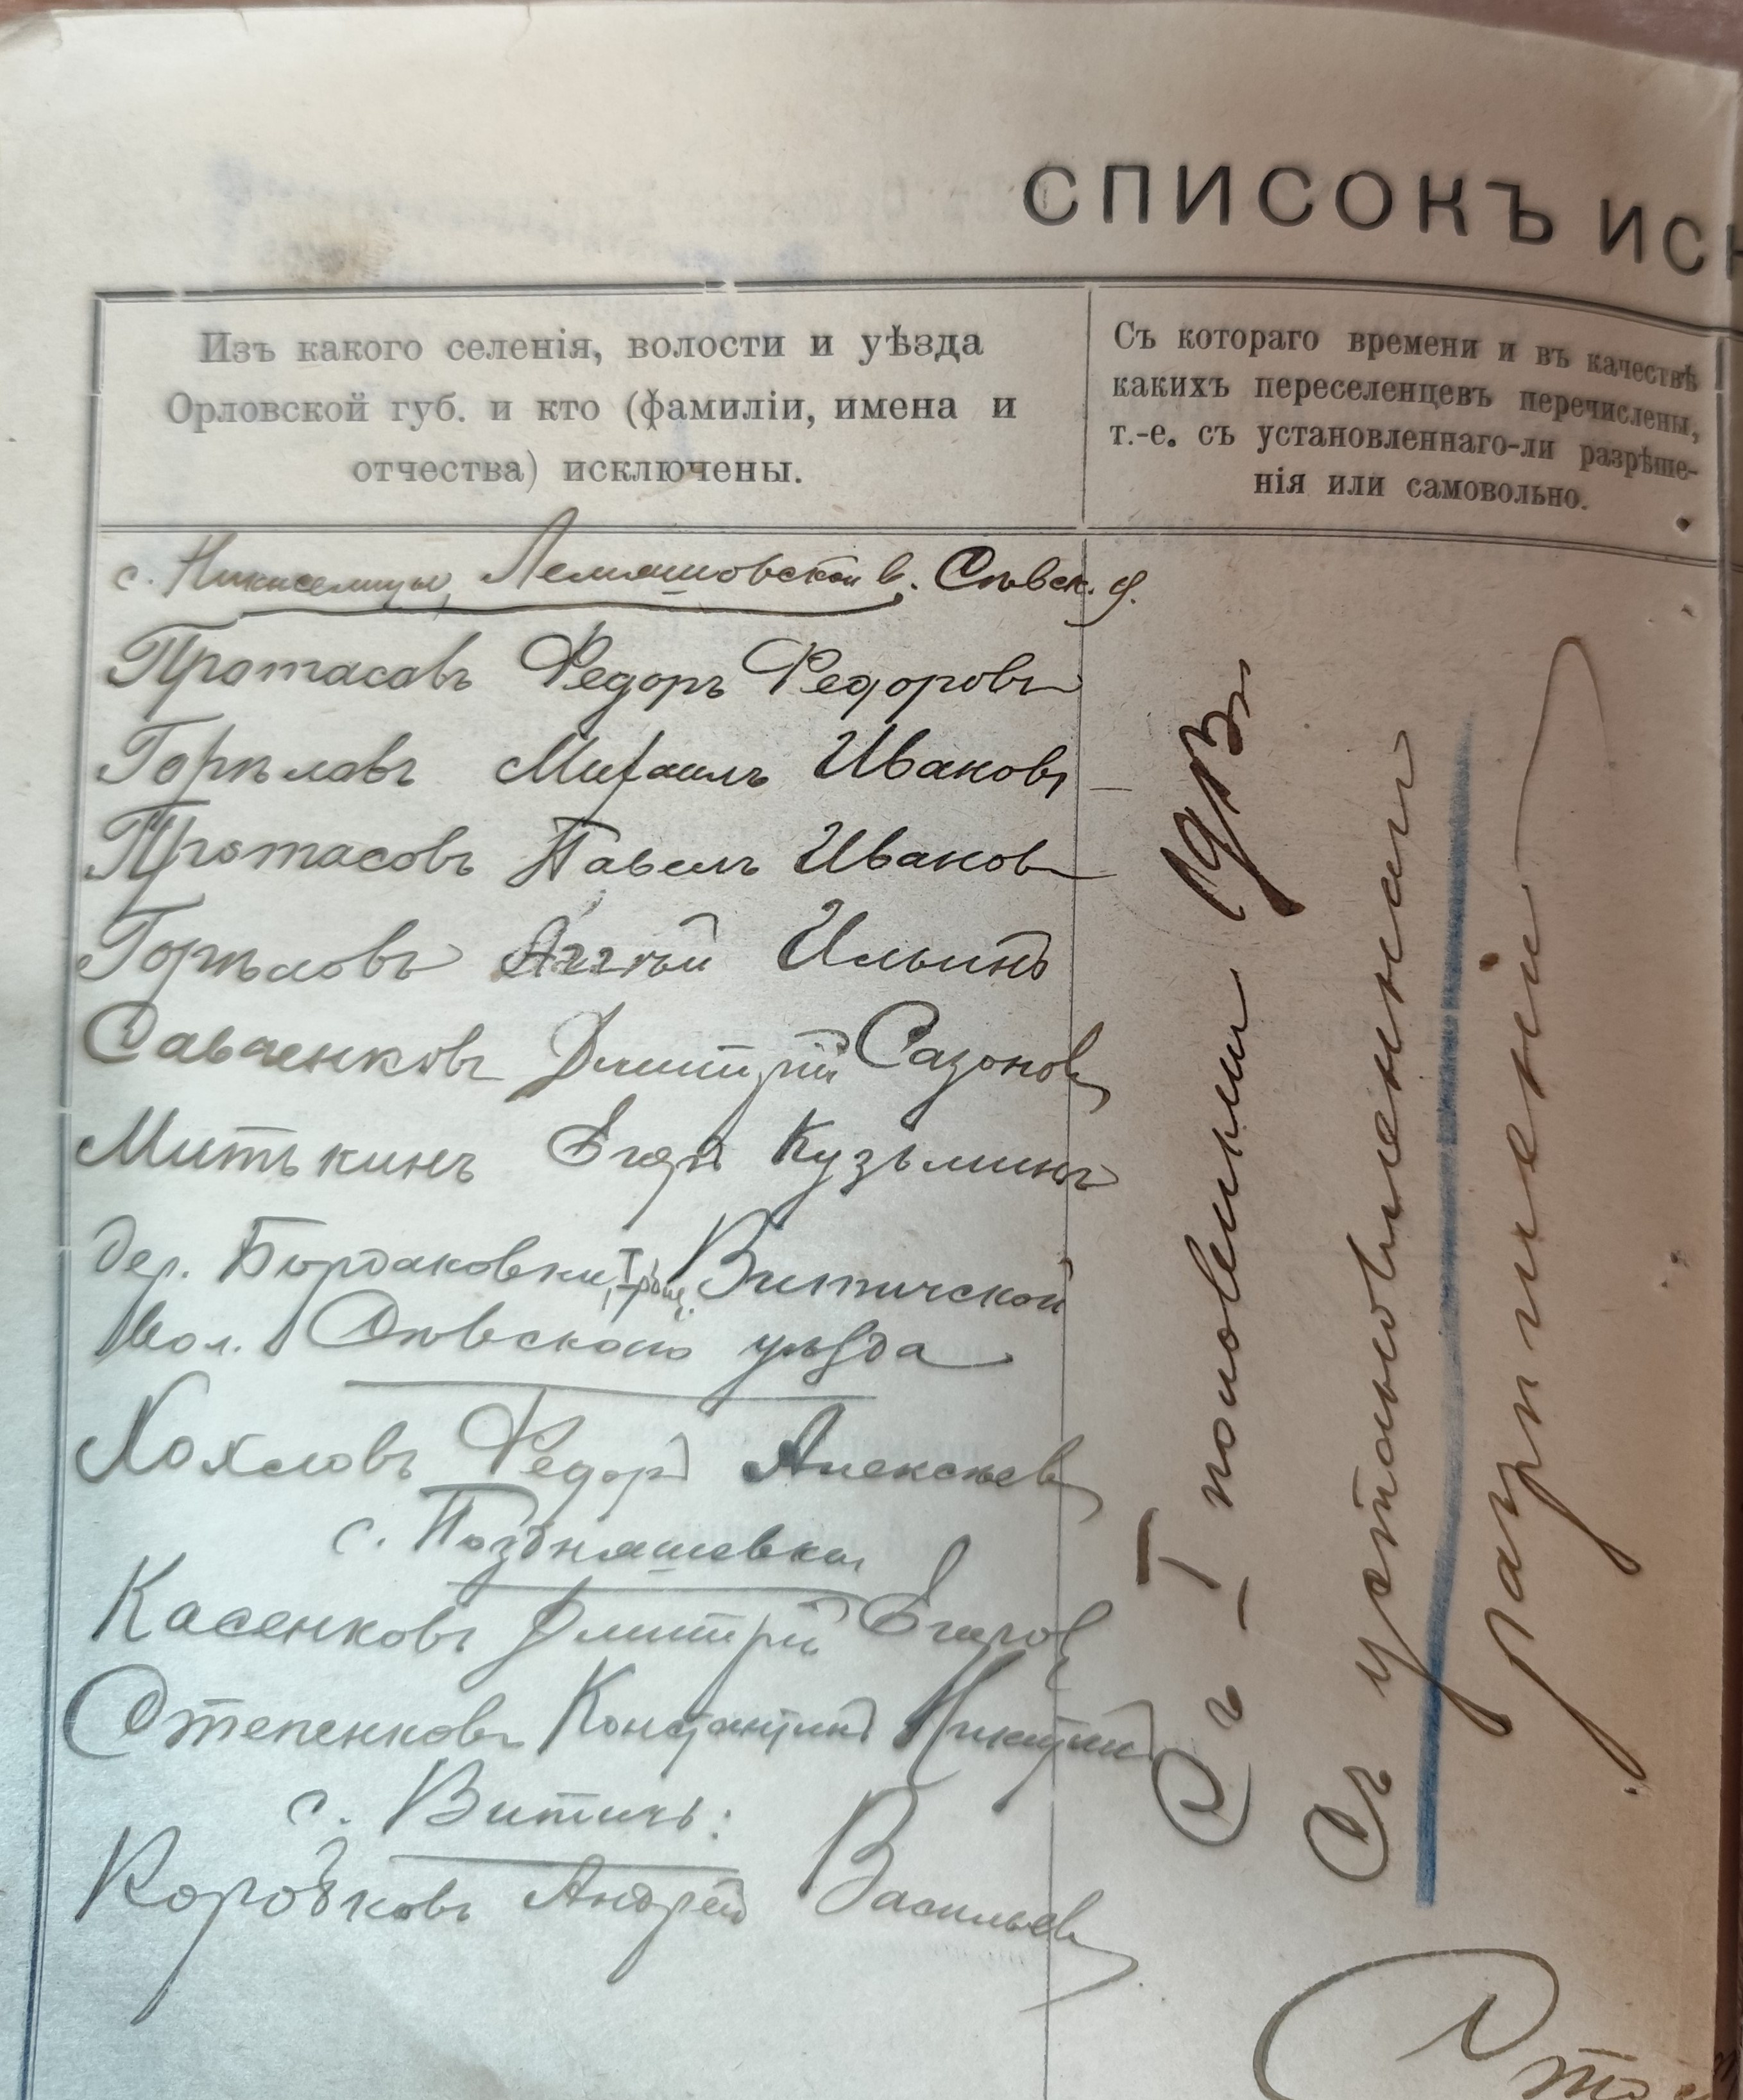 СПИСОКЪ ИСК
Изъ какого селенія, волости и уѣзда
Орловской губ. и кто (фамиліи, имена и
отчества) исключены.
Съ котораго времени и въ качествѣ
какихъ переселенцевъ перечислены,
т.-е. съ установленнаго-ли разрѣше-
нія или самовольно.
с. Лемяшовской в. Сѣвск. у.
Протасовъ Федоръ Федоровъ
Горѣловъ Михаилъ Ивановъ
Протасовъ Павелъ Ивановъ
Горѣловъ Аггѣй Ильинъ
Савченковъ Дмитрій Сазоновъ
Митькинъ Егоръ Кузьминъ
дер. Бордаковки, Витичской
вол. Сѣвскаго уѣзда
Хохловъ Федоръ Алексѣевъ
с. Поздняшевка
Касенковъ Дмитрій Егоровъ
Степенковъ Константинъ Никитинъ
с. Витичь:
Коробковъ Андрей Васильевъ
Съ I половины 19
Съ установленнаго
разрѣшенія